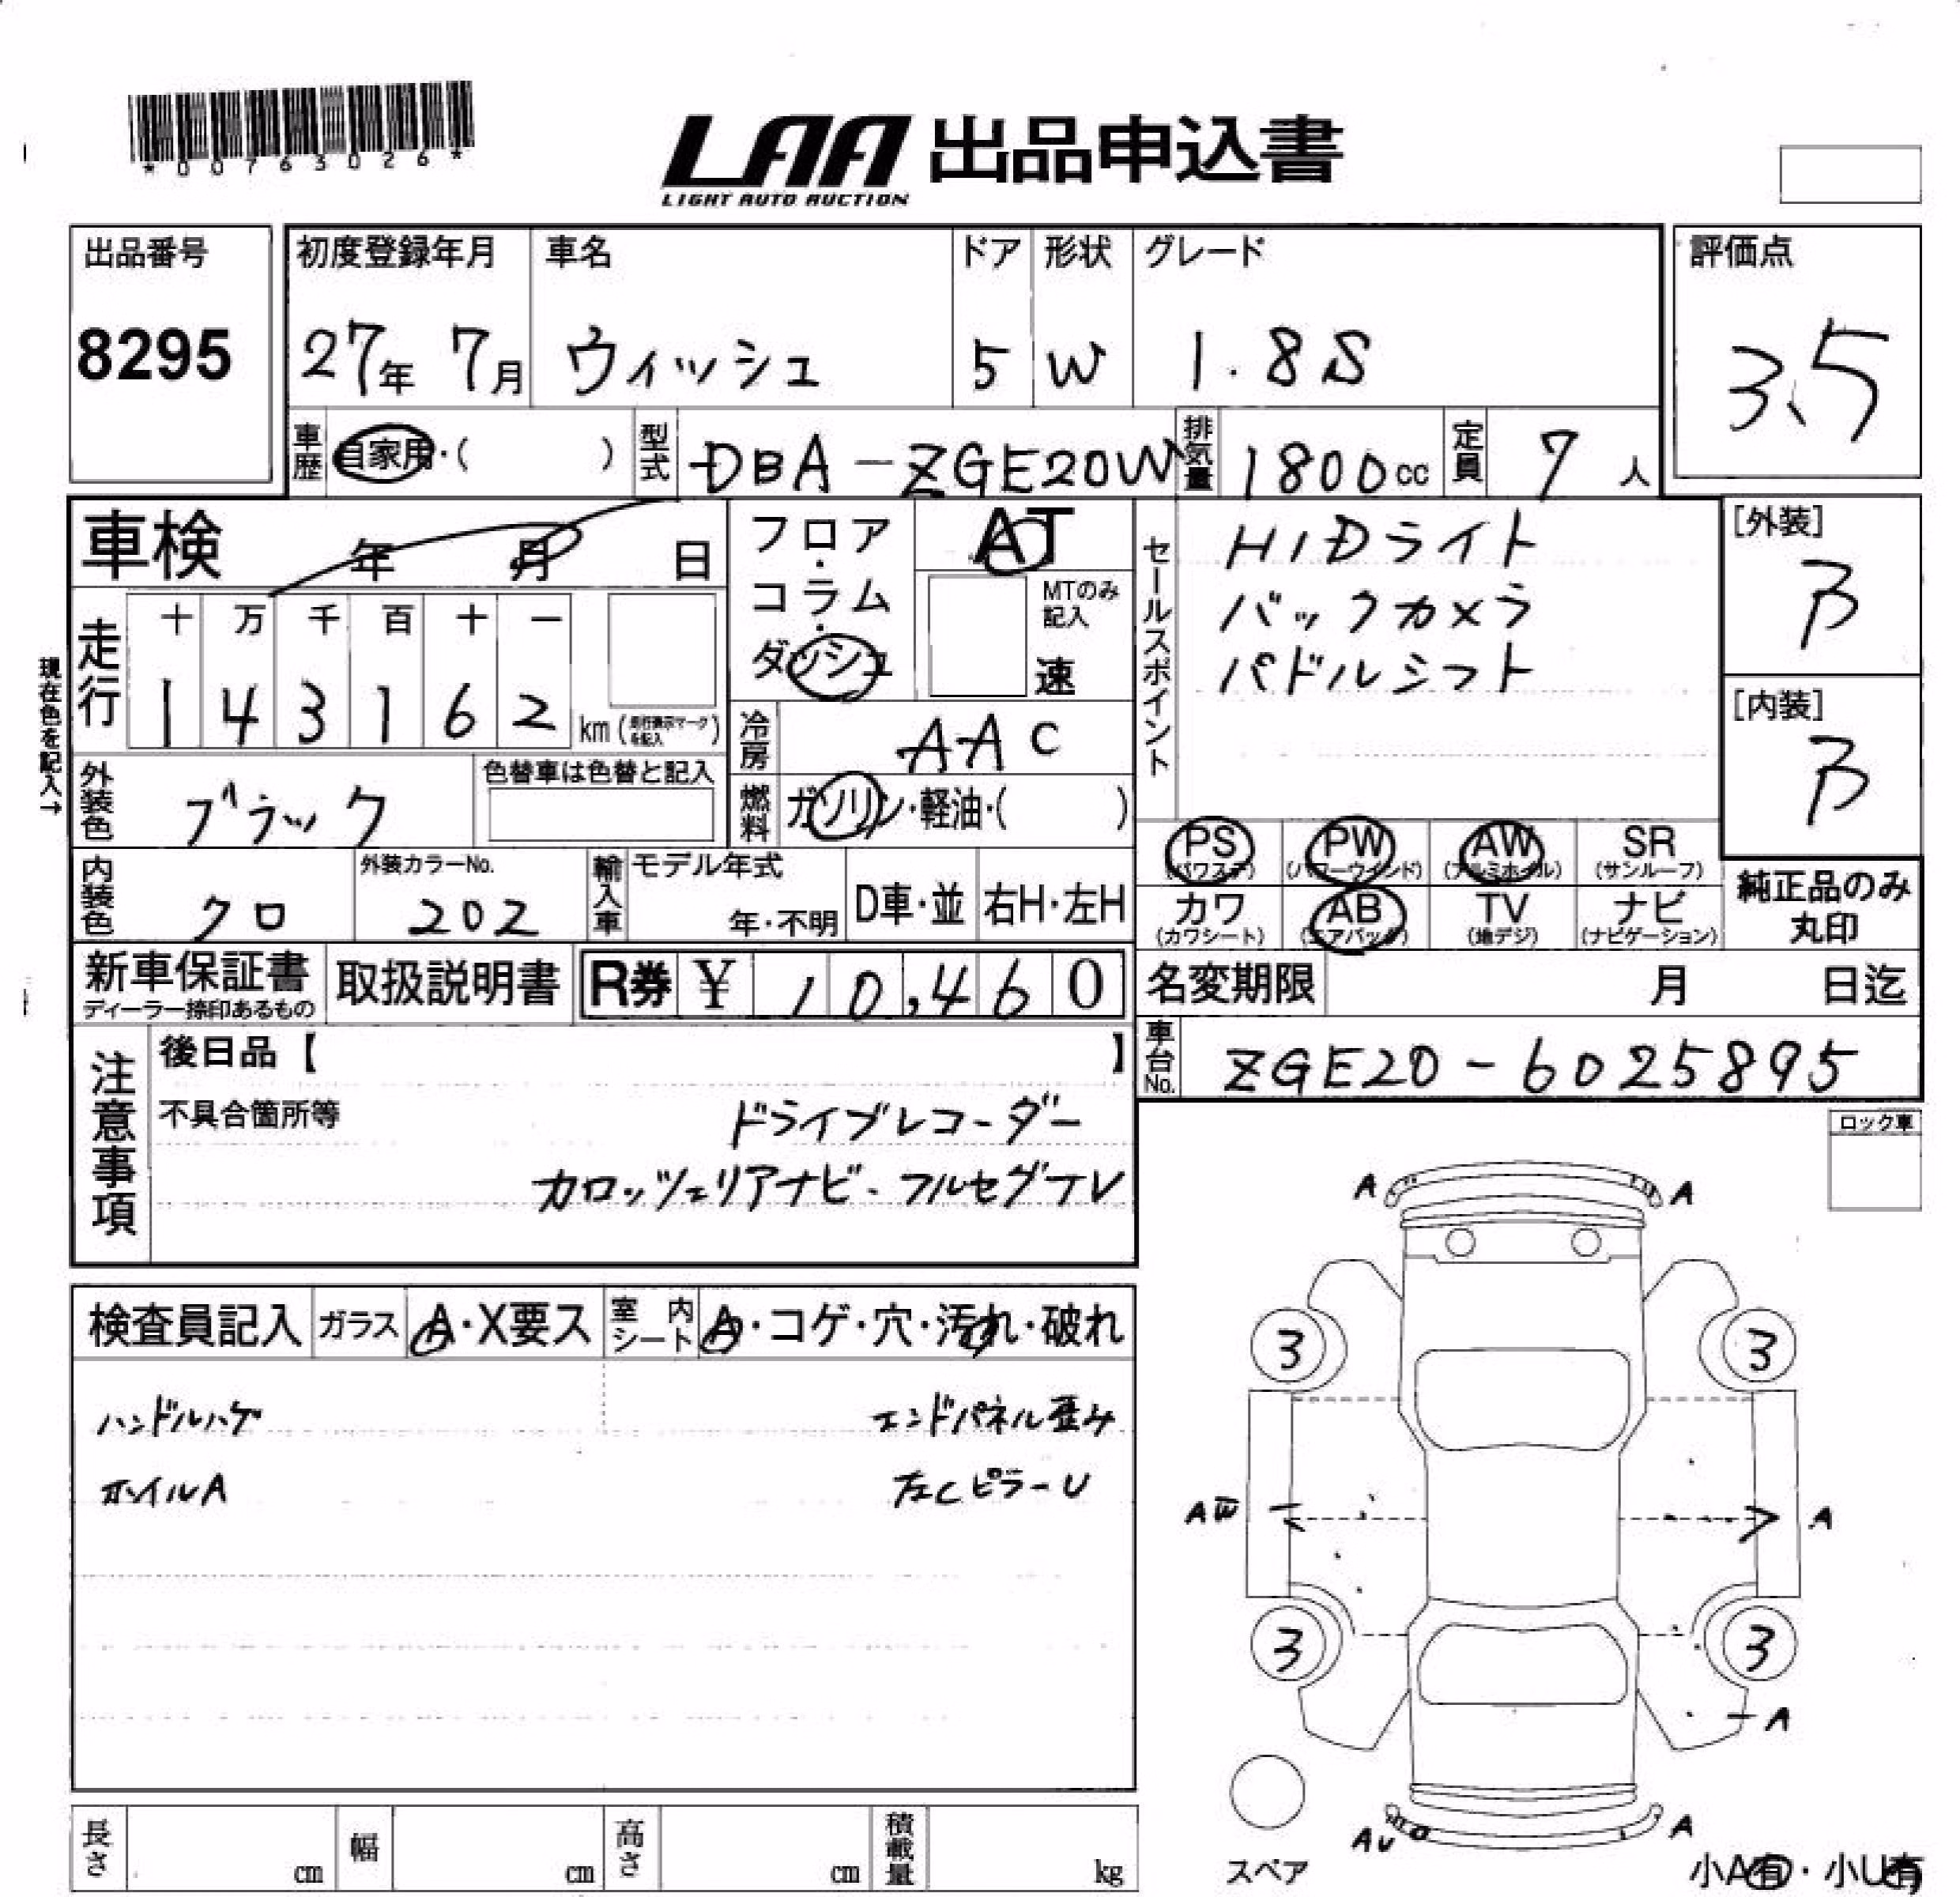 *00763026*
LAA 出品申込書
LIGHT AUTO AUCTION
出品番号
8295
初度登録年月
27年 7月
車名
ウィッシュ
ドア
5
形状
W
グレード
1.8S
評価点
3.5
車歴
自家用・( )
型式
DBA-ZGE20W
排気量
1800cc
定員
7人
車検 年 月 日
フロア・コラム・ダッシュ
AT
MTのみ記入
速
セールスポイント
HIDライト
バックカメラ
パドルシフト
[外装]
B
[内装]
B
現在色を記入→
走行
十 万 千 百 十 一
1 4 3 1 6 2 km (走行表示マークを記入)
冷房
AAC
外装色
ブラック
色替車は色替と記入
燃料
ガソリン・軽油・( )
PS (パワステ)
PW (パワーウインド)
AW (アルミホイル)
SR (サンルーフ)
カワ (カワシート)
AB (エアバッグ)
TV (地デジ)
ナビ (ナビゲーション)
純正品のみ
丸印
内装色
クロ
外装カラーNo.
202
輸入車
モデル年式
年・不明
D車・並
右H・左H
新車保証書
ディーラー捺印あるもの
取扱説明書
R券 ¥ 10,460
名変期限 月 日迄
車台No.
ZGE20-6025895
注意事項
後日品【 】
不具合箇所等
ドライブレコーダー
カロッツェリアナビ・フルセグTV
ロック車
検査員記入
ガラス A・X要ス
室内シート A・コゲ・穴・汚れ・破れ
ハンドルハゲ
エンドパネル歪み
ホイルA
左CピラーU
A A
3 3
AW A
3 3
A
AU A
スペア
小A有・小U有
長さ cm
幅 cm
高さ cm
積載量 kg